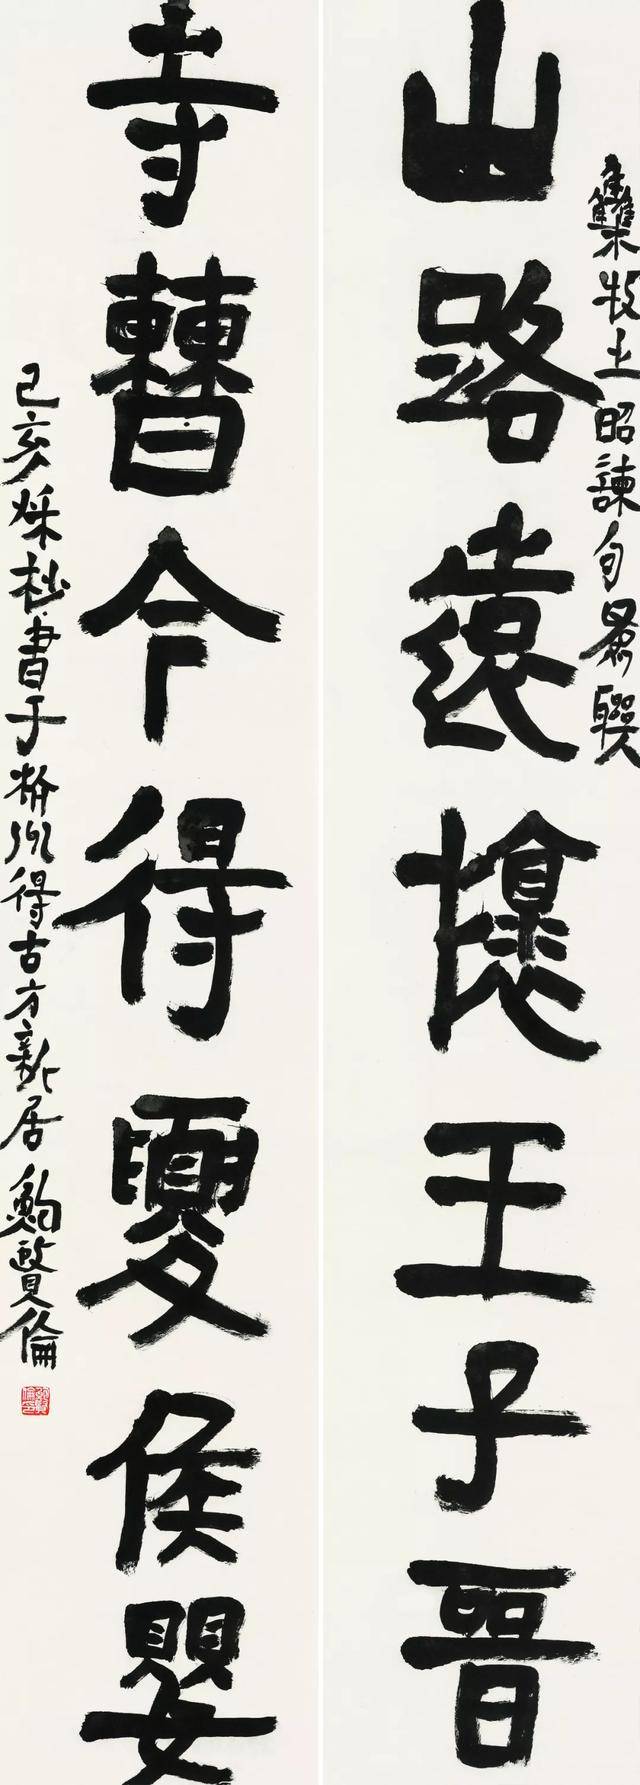 集牧之昭諫句爲聯
山路遠懷王子晉
寺曹今得夏侯嬰
己亥秋杪書于杭州得古方新居鮑賢倫